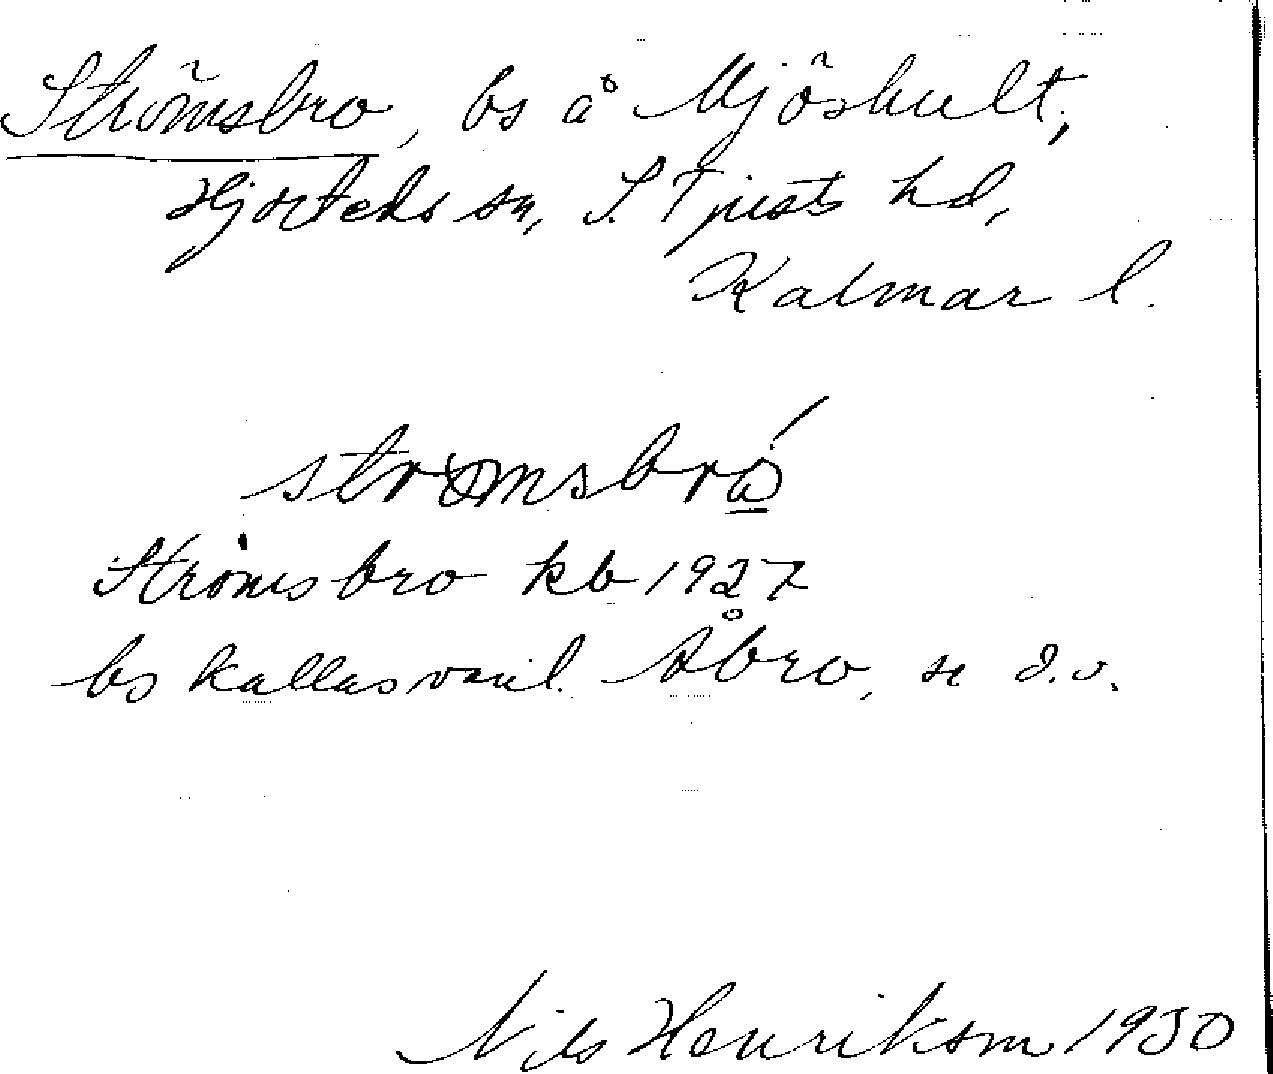 Strömsbro, bs å Mjöshult,
Hjorteds sn, S. Tjusts hd,
Kalmar l.
strømsbró̲
Strömsbro kb 1927
bs kallas vanl. Åbro, se d.o.
Nils Henriksson 1930